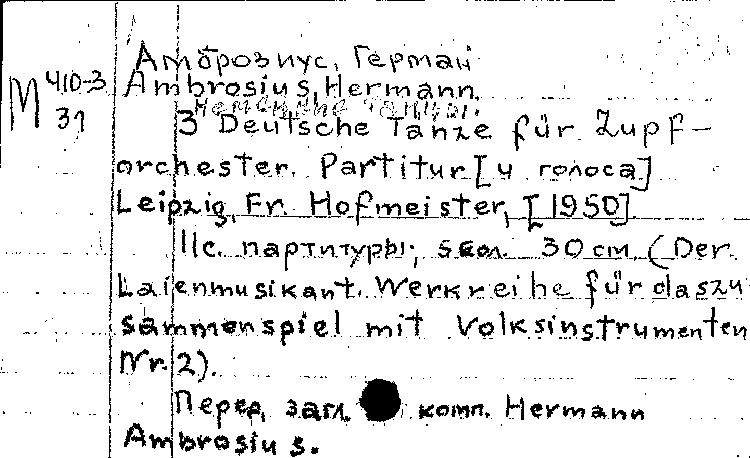 Амброзиус, Герман
М 410-3
31
Ambrosius, Hermann.
Немецкие танцы.
3 Deutsche Tänze für Zupf-
orchester. Partitur [и голоса]
Leipzig, Fr. Hofmeister, [1950].
11с. партитуры; 5 гол. 30 см. (Der
Laienmusikant. Werkreihe für daszu
sammenspiel mit Volksinstrumenten
Nr. 2).
Перед загл. комп. Hermann
Ambrosius.